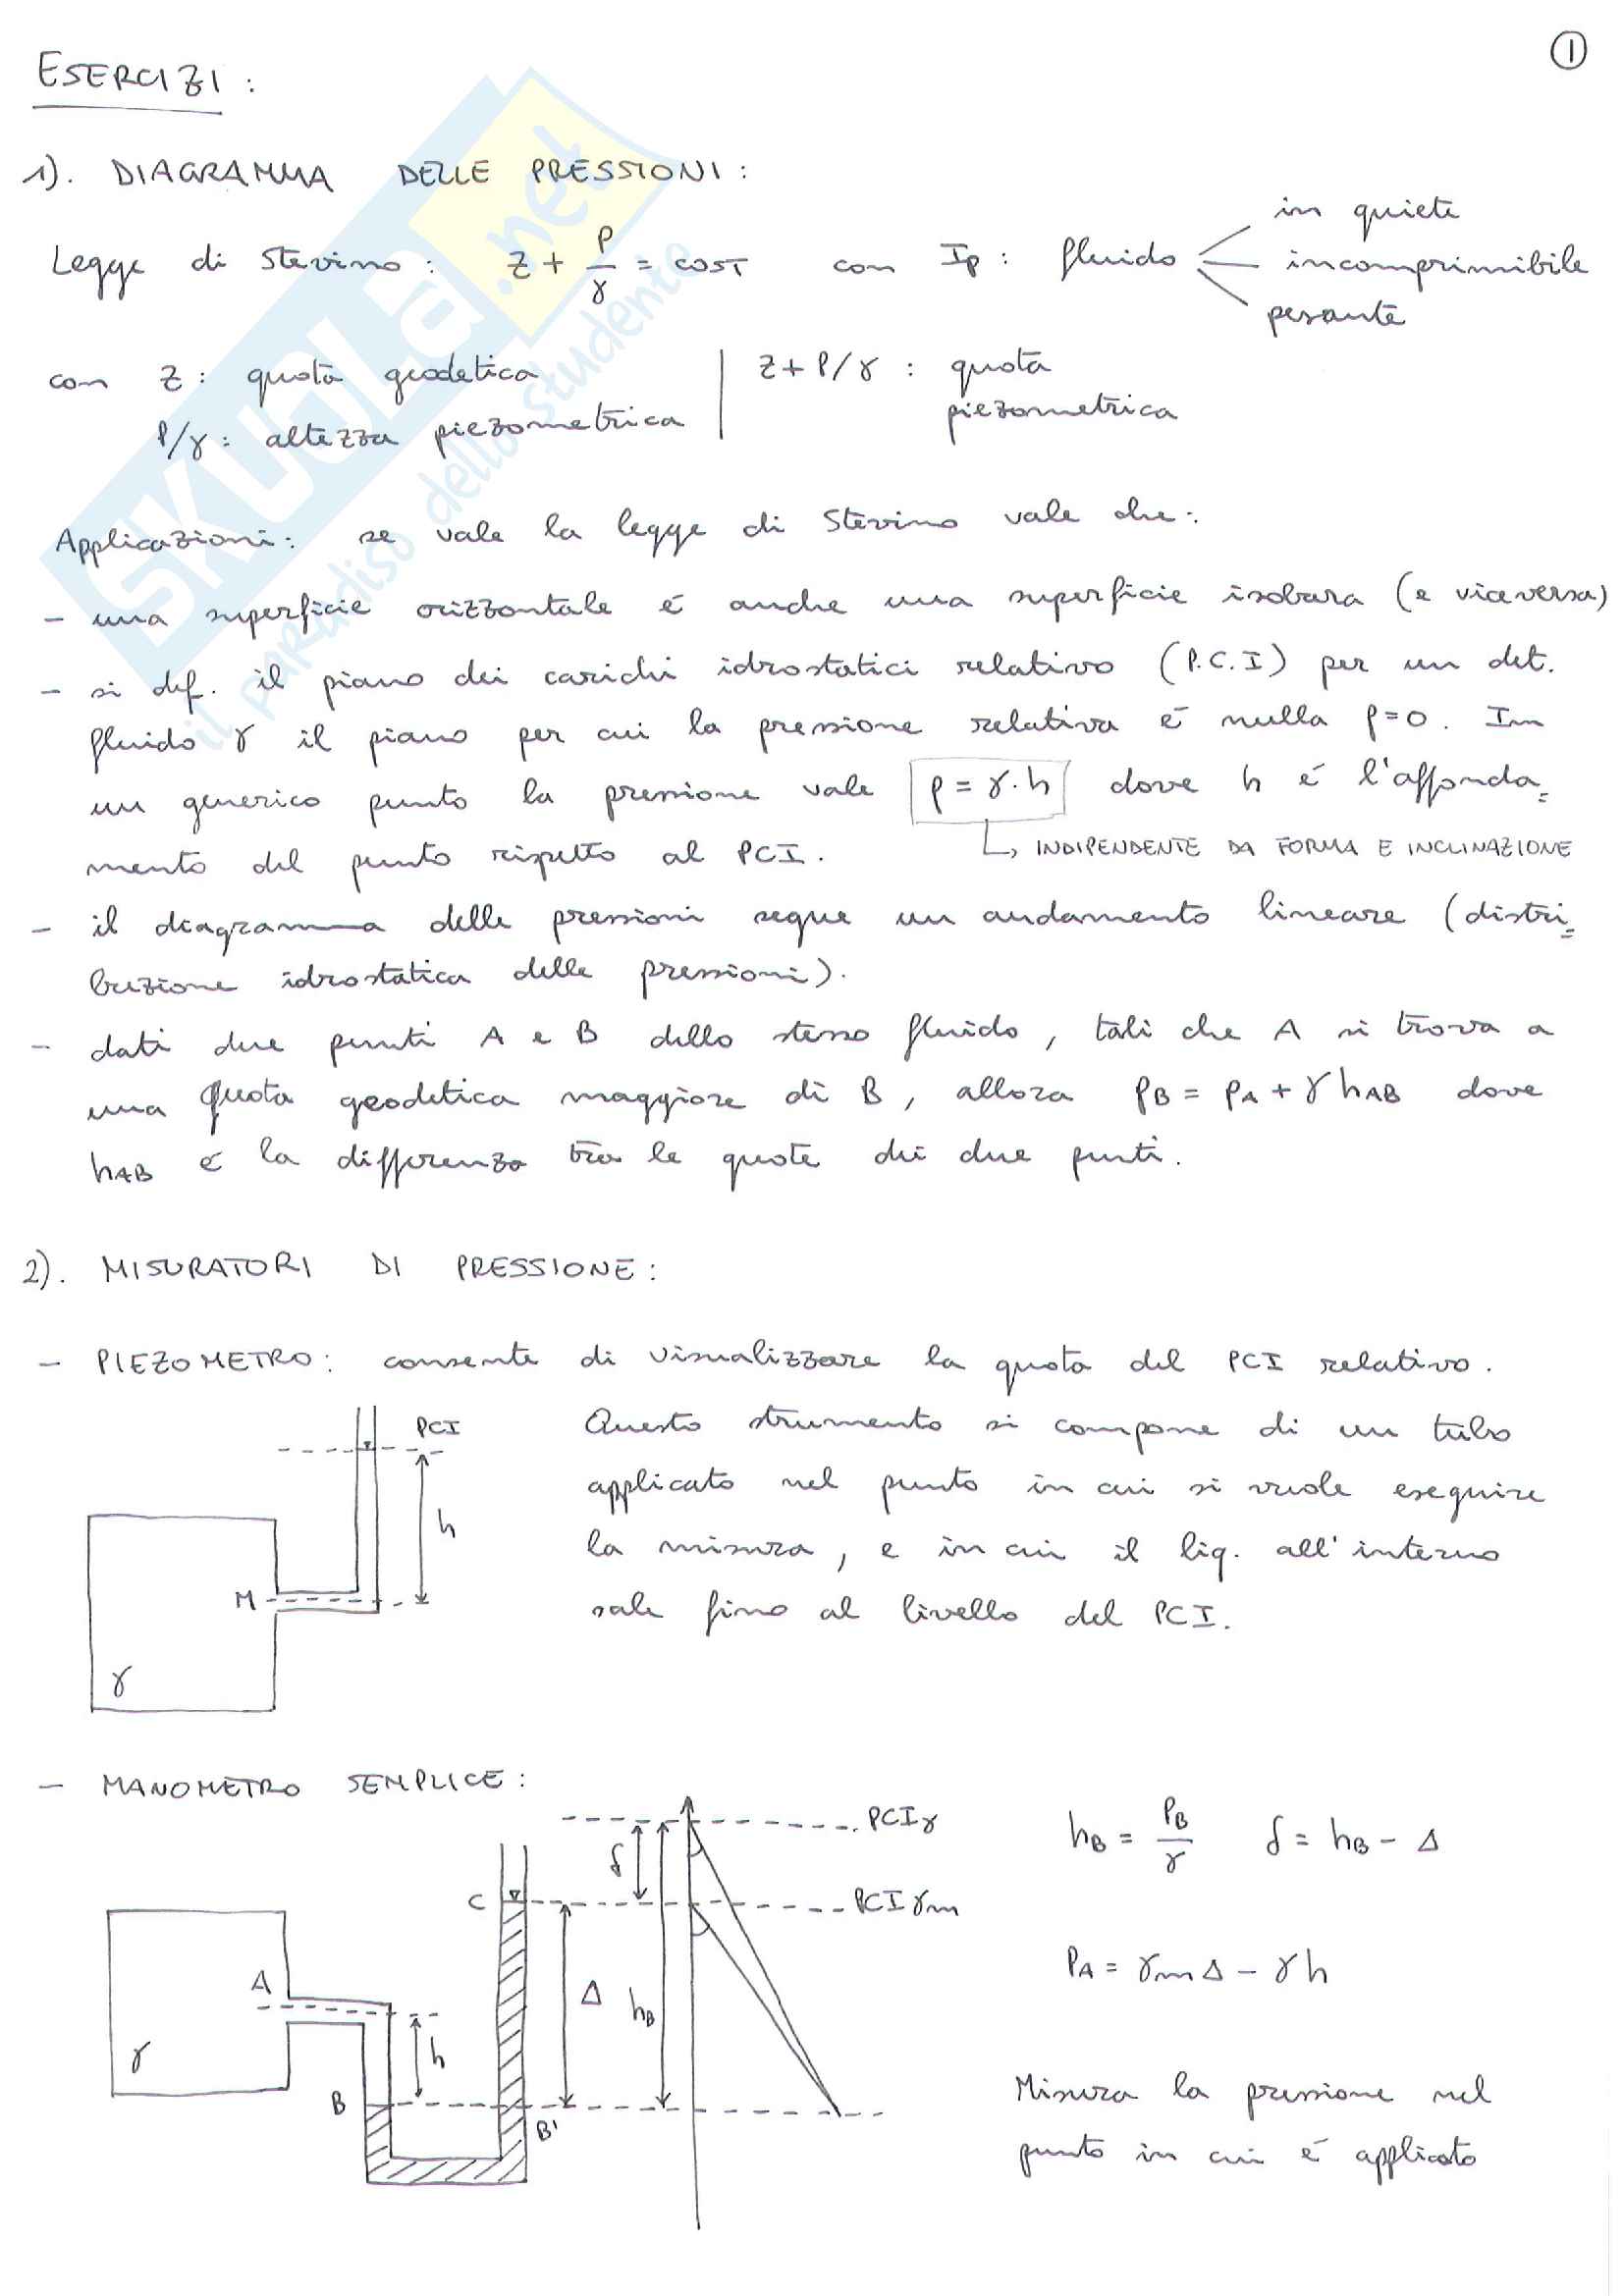 ①
ESERCIZI :
1). DIAGRAMMA DELLE PRESSIONI :
Legge di Stevino : z + p/γ = cost con Ip : fluido in quiete
incomprimibile
pesante
con z : quota geodetica | z + p/γ : quota
p/γ : altezza piezometrica | piezometrica
Applicazioni : se vale la legge di Stevino vale che :
- una superficie orizzontale é anche una superficie isobara (e viceversa)
- si def. il piano dei carichi idrostatici relativo (P.C.I) per un det.
fluido γ il piano per cui la pressione relativa é nulla p=0. In
un generico punto la pressione vale p = γ·h dove h é l'affonda=
mento del punto rispetto al PCI.
↳ INDIPENDENTE DA FORMA E INCLINAZIONE
- il diagramma delle pressioni segue un andamento lineare (distri=
buzione idrostatica delle pressioni).
- dati due punti A e B dello stesso fluido, tali che A si trova a
una quota geodetica maggiore di B, allora pB = pA + γ hAB dove
hAB é la differenza tra le quote dei due punti.
2). MISURATORI DI PRESSIONE :
- PIEZOMETRO : consente di visualizzare la quota del PCI relativo.
Questo strumento si compone di un tubo
applicato nel punto in cui si vuole eseguire
la misura, e in cui il liq. all'interno
sale fino al livello del PCI.
PCI
h
M
γ
- MANOMETRO SEMPLICE :
PCIγ
hB = pB/γ δ = hB - Δ
δ
C
PCIγm
pA = γmΔ - γh
A
Δ
hB
γ
h
B
B'
Misura la pressione nel
punto in cui é applicato
SKUOLA.net
il paradiso dello studente